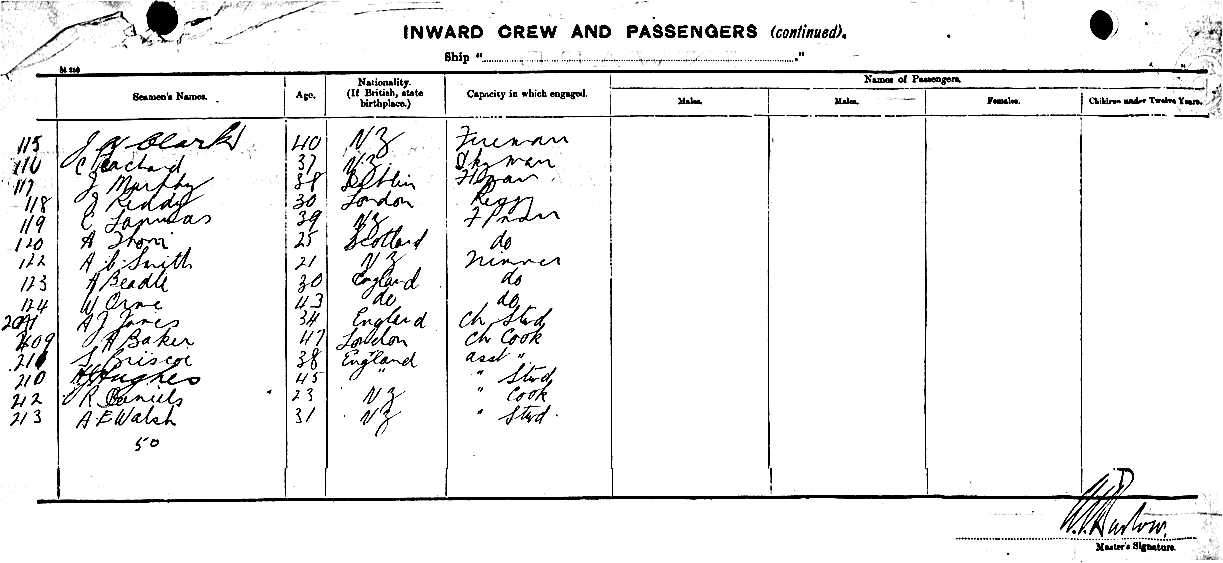 INWARD CREW AND PASSENGERS (continued).
Ship "
Seamen's Names. Age. Nationality. (If British, state birthplace.) Capacity in which engaged. Names of Passengers.
Males. Males. Females. Children under Twelve Years.
115 J Clark 40 NZ Fireman
116 C 37 NZ
117 J Murphy 38 Dublin
118 J Reddy 30 London
119 C 39 NZ
120 A Thom 25 Scotland do
122 A C Smith 21 NZ Trimmer
123 A Beadle 30 England do
124 W Orme 43 do do
A J Jones 34 England Ch Stwd
A Baker 47 London Ch Cook
S Briscoe 38 England asst "
210 H Hughes 45 " " Stwd
212 R Daniels 23 NZ " Cook
213 A E Walsh 31 NZ " Stwd
50
Barlow
Master's Signature.